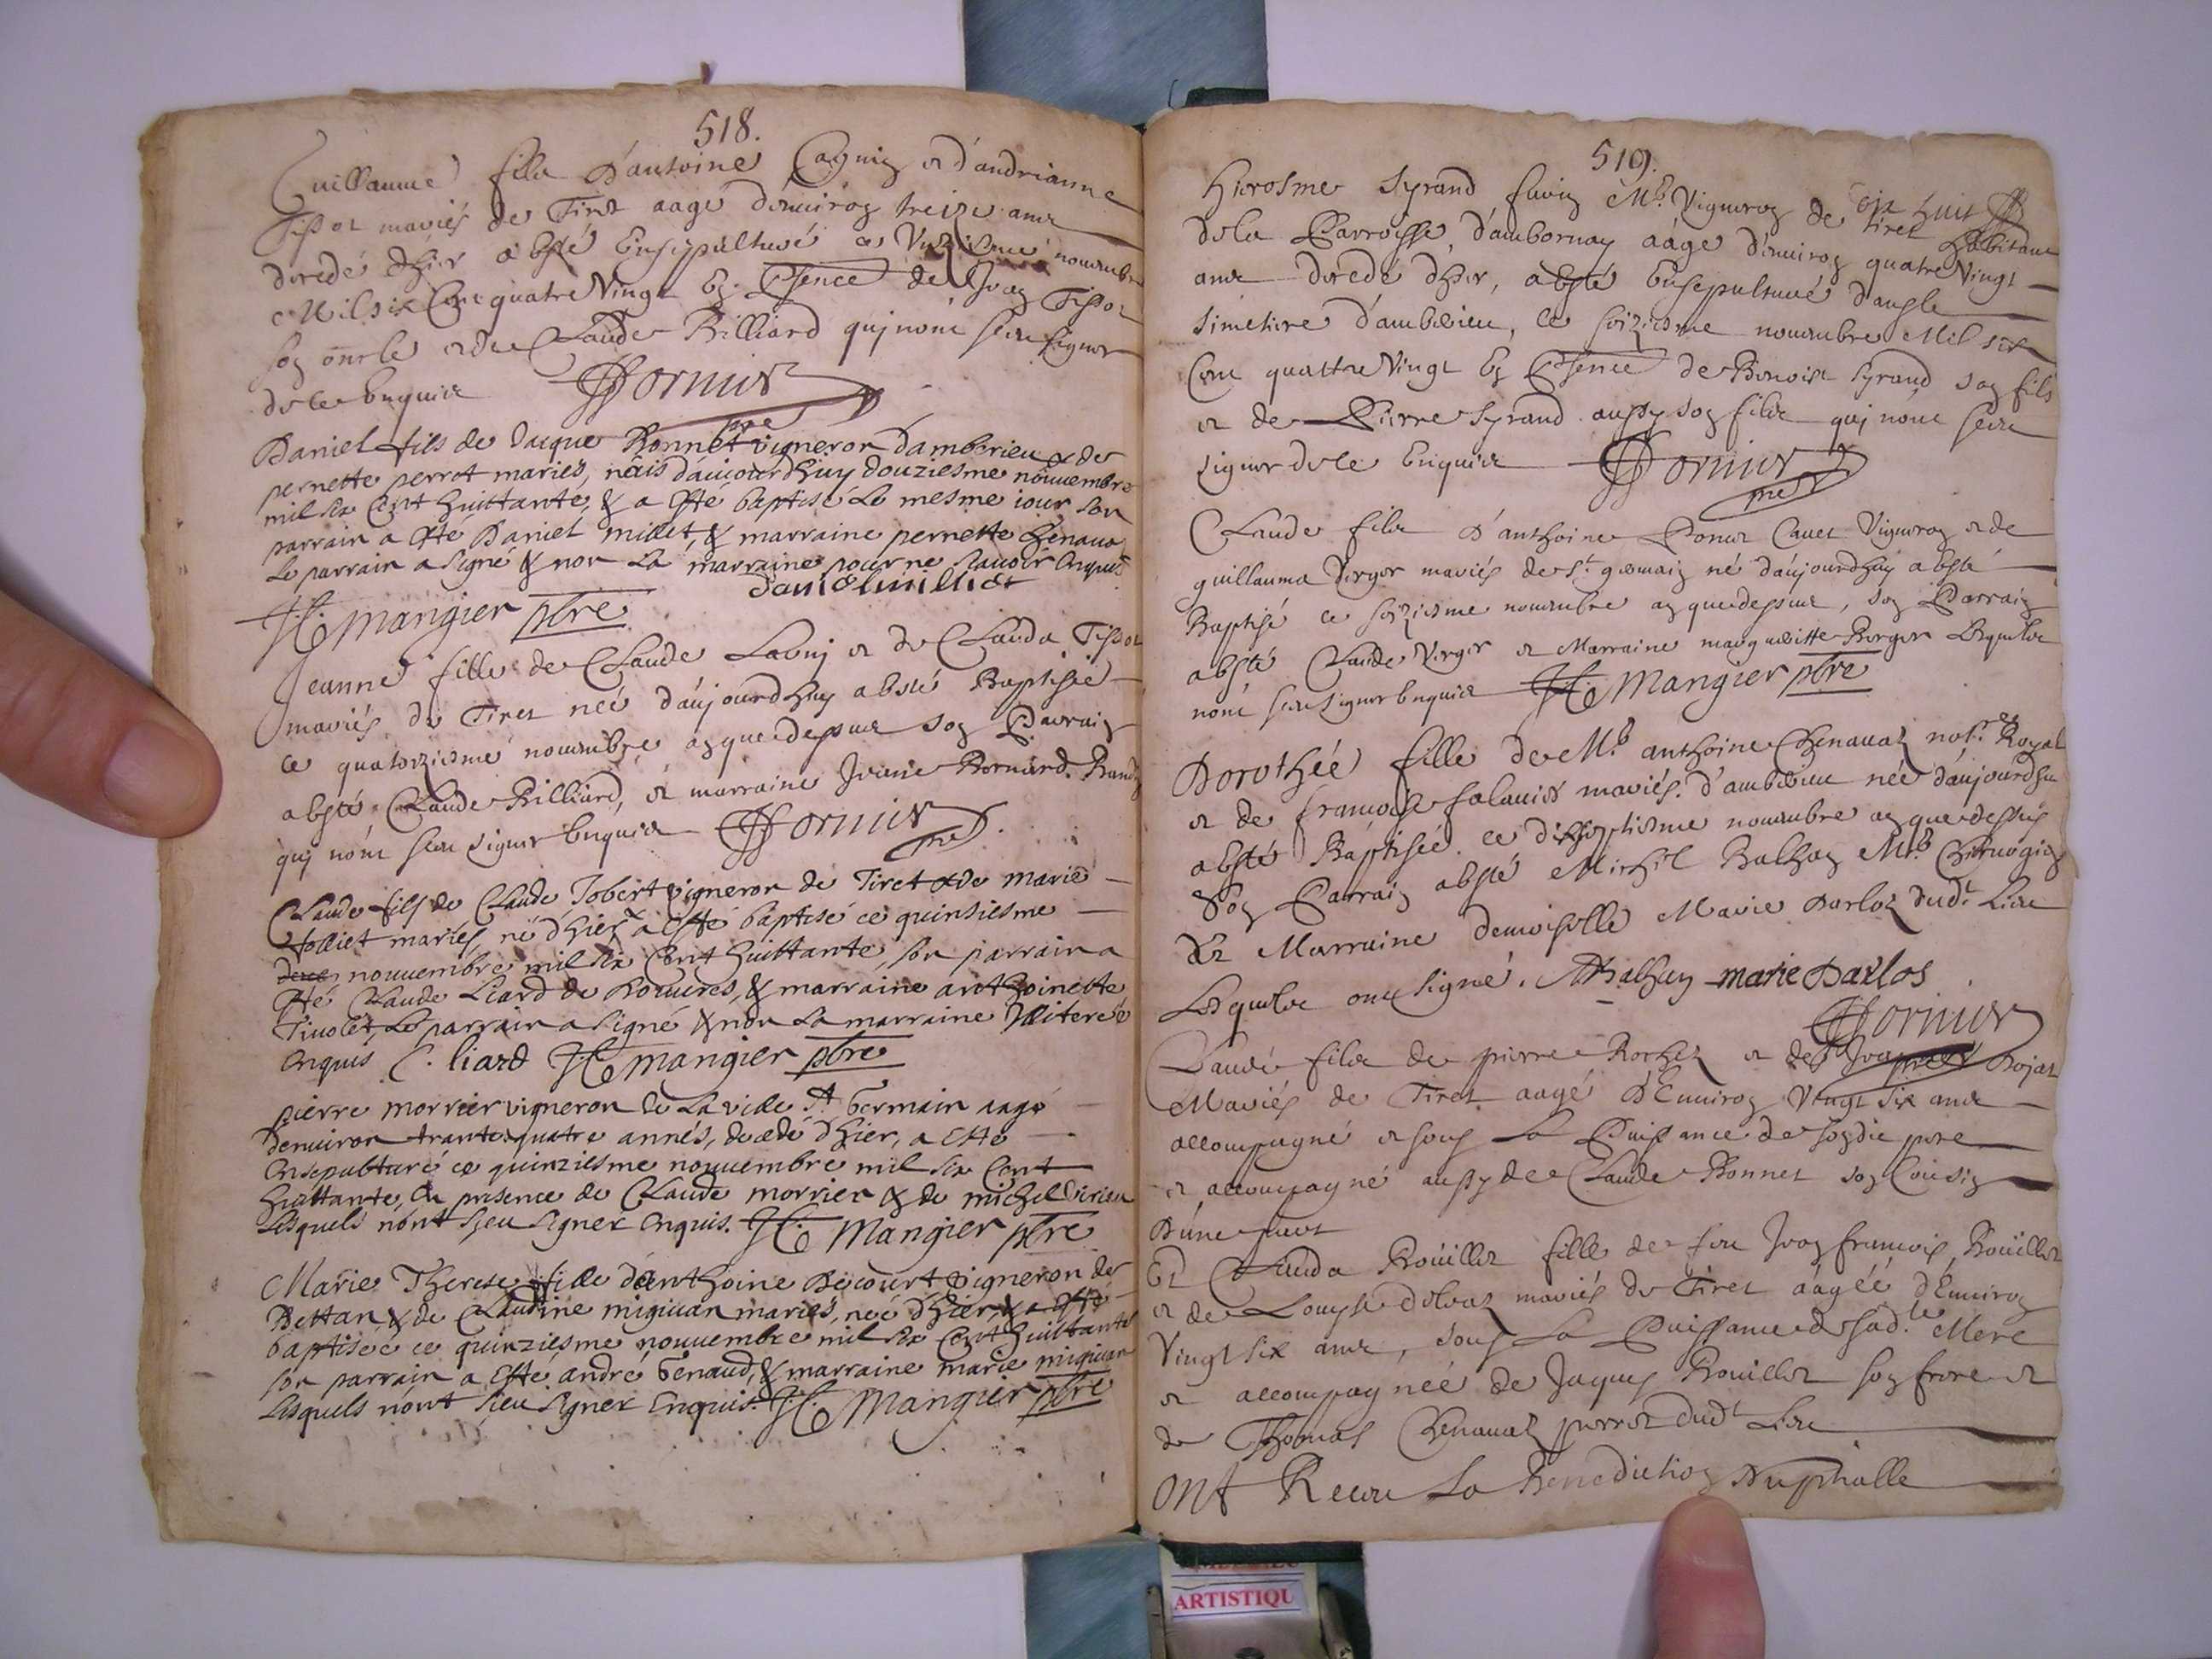 518.
Guillaume fils D'antoine Cagnin et d'andrianne
Tissot mariés de Tiret aagé d'enuiron treize ans
decedé d'hier a esté Ensepulturé ce Vnziesme nouembre
Mil six Cent quatre Vingt En Psence de Jean Tissot
son oncle et de Claude Billiard qui n'ont sceu signer
de ce Enquis FFornier
pre
Daniel fils de Jacque Bonnet vigneron d'ambérieu & de
pernette perrot mariés, nais d'aujourd'huy douziesme nouuembre
mil six Cent huittante, & a esté baptisé Le mesme iour son
parrain a esté Daniel millet, & marraine pernette Genaud
Le parrain a signé & non La marraine pour ne scauoir Enquis
daniel millet
JC Mangier pbre
Jeanne fille de Claude Lauuj et de Clauda Tissot
mariés de Tiret née d'aujourdhuy a esté Baptisée
ce quatorziesme nouembre an que dessus son Parrain
a esté Claude Billiard, et marraine Jeanne Bernard
qui nont sceu signer Enquis FFornier
pre
Claude fils de Claude Jobert vigneron de Tiret & de marie
folliet mariés, né d'hier a esté baptisé ce quinsiesme
nouuembre mil six Cent huittante, son parrain a
esté Claude Liard de Douures, & marraine anthoinette
Tiuolet, Le parrain a signé & non La marraine Illiterée
Enquis C. liard JC Mangier pbre
pierre morrier vigneron de La ville St Germain aagé
denuiron trante quatre annés, decedé d'hier, a esté
Ensepulturé ce quinziesme nouuembre mil six Cent
huittante, En presence de Claude morrier & de michel
Lesquels n'ont sceu signer Enquis. JC Mangier pbre
Marie Therese fille d'anthoine Decourt vigneron de
Bettan & de Claudine migiuan mariés, neé d'hier & a esté
baptiseé ce quinziesme nouuembre mil six Cent huittante
son parrain a esté andré Genaud, & marraine marie migiuan
Lesquels n'ont sceu signer Enquis. JC Mangier pbre
519.
Hierosme Syrand Mre Vigneron de Tiret habitant
de la Parroisse d'ambornay aagé d'enuiron quatre Vingt
ans decedé d'hier, a esté Ensepulturé dans le
simetiere d'ambérieu, ce seiziesme nouembre Mil six
Cent quattre Vingt En Psence de Benoist Syrand son fils
et de Pierre Syrand aussy son fils qui nont sceu
signer de ce Enquis FFornier
pre
Claude fils d'anthoine Ponse Cauet Vigneron et de
guillauma Verger mariés de St germain né d'aujourdhuy a esté
Baptisé ce seiziesme nouembre an que dessus, son Parrain
a esté Claude Verger et Marraine margueritte Berger Lesquels
nont sceu signer Enquis JC Mangier pbre
Dorothée fille de Mre anthoine Chenauaz notre Royal
et de francoise salauier mariés d'ambérieu née d'aujourdhuy
a esté Baptisée ce disseptiesme nouembre an que dessus
Son Parrain a esté Michel Balhan Mre Chirurgien
Et Marraine demoiselle Marie Darloz dudt Lieu
Lesquels ont signé. MBalhan marie Darlos
FFornier
pre
Claude fils de pierre Rochet et de Jeanne Rojat
Mariés de Tiret aagé D'Enuiron Vingt six ans
accompagné et sous La Puissance de sondit pere
et accompagné aussy de Claude Bonnet son Cousin
D'une part
Et Clauda Rouillet fille de feu Jean francois Rouillet
et de Louyse delouaz mariés de Tiret áagéé d'Enuiron
Vingt six ans, sous La Puissance de sad.te Mere
et accompagnée de Jaques Rouillet son frere et
de Thomas Chenauaz perrot dudt Lieu
ont Receu La Benediction Nuptialle
ARTISTIQU